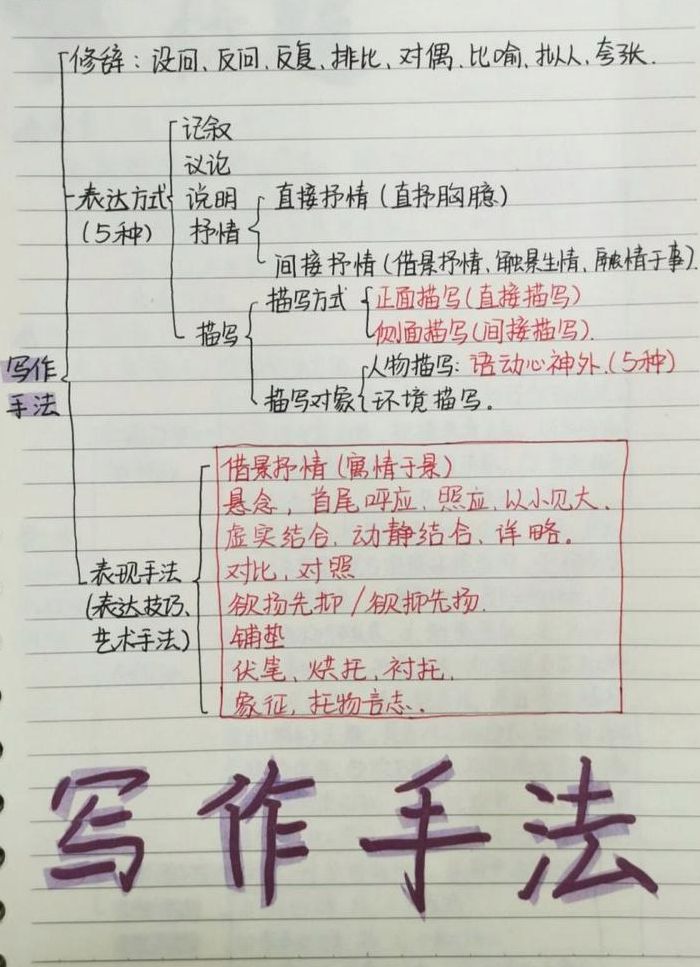 修辞：设问、反问、反复、排比、对偶、比喻、拟人、夸张.
记叙
议论
表达方式
(5种)
说明
抒情
直接抒情(直抒胸臆)
间接抒情(借景抒情、触景生情、融情于事).
描写
描写方式
正面描写(直接描写)
侧面描写(间接描写).
描写对象
人物描写：语动心神外.(5种)
环境描写.
写作
手法
表现手法
(表达技巧、
艺术手法)
借景抒情(寓情于景)
悬念，首尾呼应、照应、以小见大、
虚实结合、动静结合、详略。
对比、对照
欲扬先抑/欲抑先扬.
铺垫
伏笔、烘托、衬托、
象征、托物言志.
写作手法